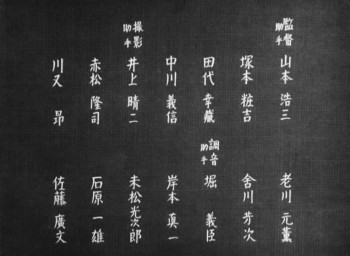 監督助手
山本浩三
塚本粧吉
田代幸蔵
中川義信
撮影助手
井上晴二
赤松隆司
川又昂
老川元薫
舎川芳次
調音助手
堀義臣
岸本真一
末松光次郎
石原一雄
佐藤廣文